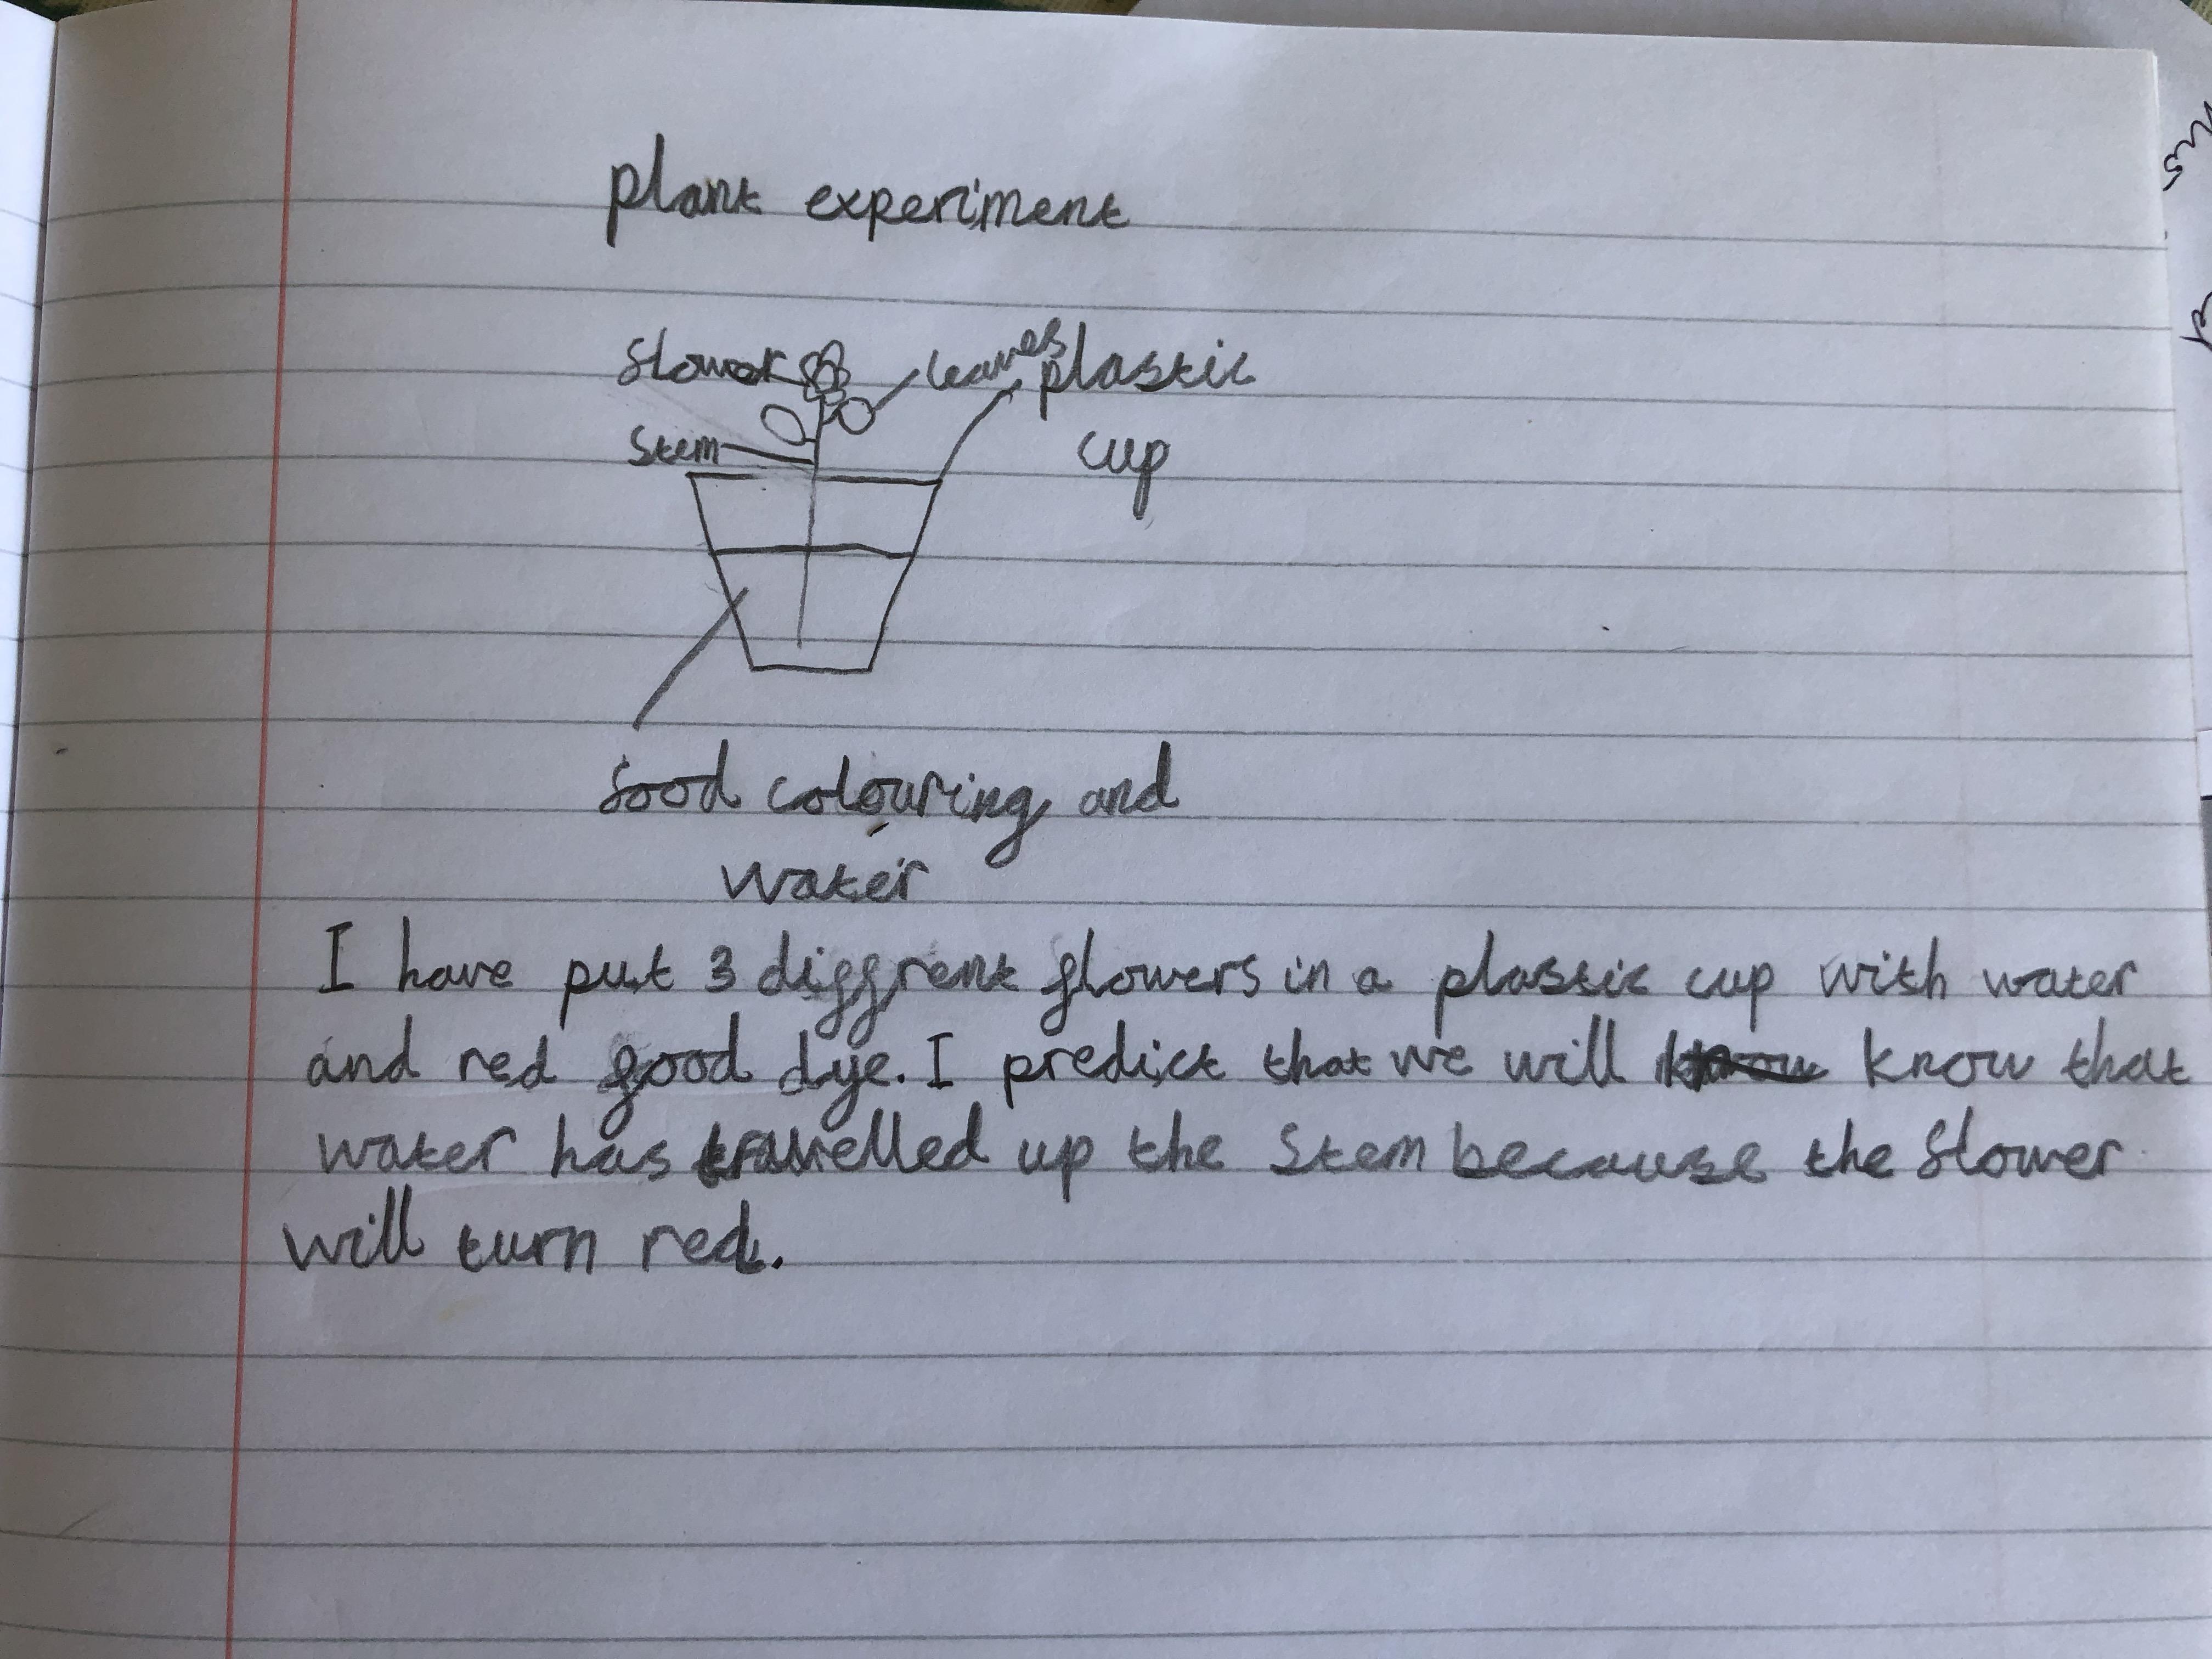 plant experiment
flower
leaves
plastic
cup
Stem
food colouring and
water
I have put 3 diffrent flowers in a plastic cup with water
and red food dye. I predict that we will know that
water has travelled up the Stem because the flower
will turn red.